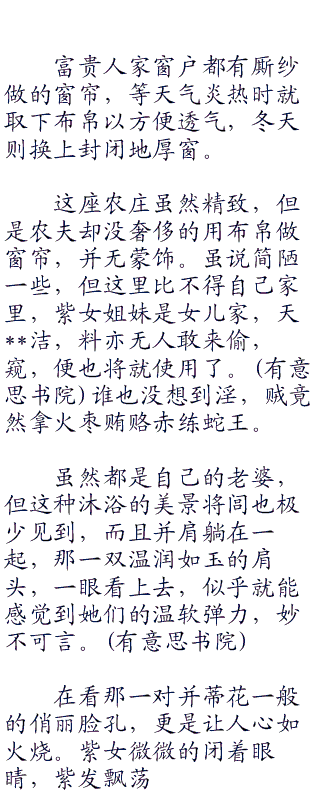 富贵人家窗户都有厮纱
做的窗帘，等天气炎热时就
取下布帛以方便透气，冬天
则换上封闭地厚窗。
这座农庄虽然精致，但
是农夫却没奢侈的用布帛做
窗帘，并无蒙饰。虽说简陋
一些，但这里比不得自己家
里，紫女姐妹是女儿家，天
**洁，料亦无人敢来偷，
窥，便也将就使用了。(有意
思书院)谁也没想到淫，贼竟
然拿火枣贿赂赤练蛇王。
虽然都是自己的老婆，
但这种沐浴的美景将闾也极
少见到，而且并肩躺在一
起，那一双温润如玉的肩
头，一眼看上去，似乎就能
感觉到她们的温软弹力，妙
不可言。(有意思书院)
在看那一对并蒂花一般
的俏丽脸孔，更是让人心如
火烧。紫女微微的闭着眼
睛，紫发飘荡